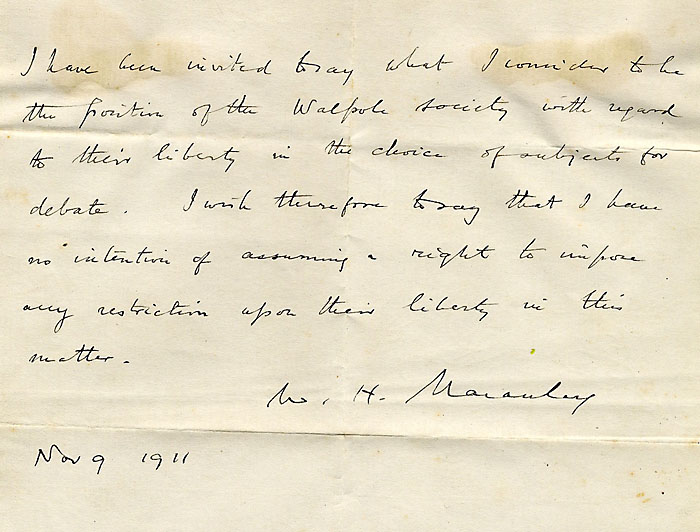 I have been invited to say what I consider to be
the position of the Walpole society with regard
to their liberty in the choice of subjects for
debate. I wish therefore to say that I have
no intention of assuming a right to impose
any restriction upon their liberty in this
matter.
W. H. Macaulay
Nov 9 1911